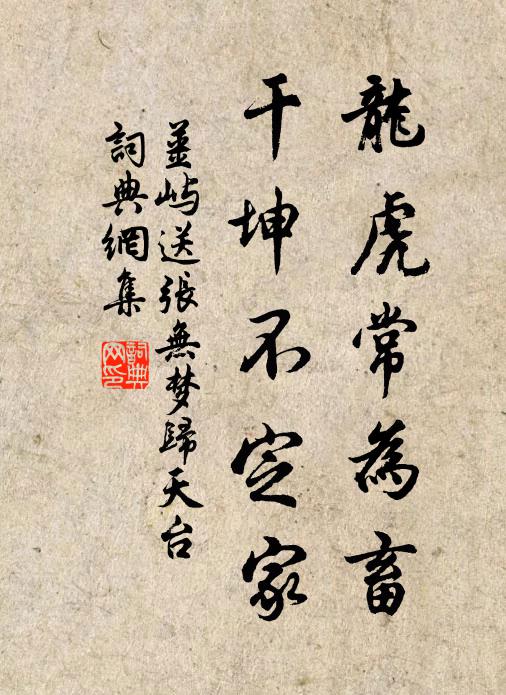 龍虎常為畜
干坤不定家
薑嶼送張無梦歸天台
詞典網集
詞典
网印